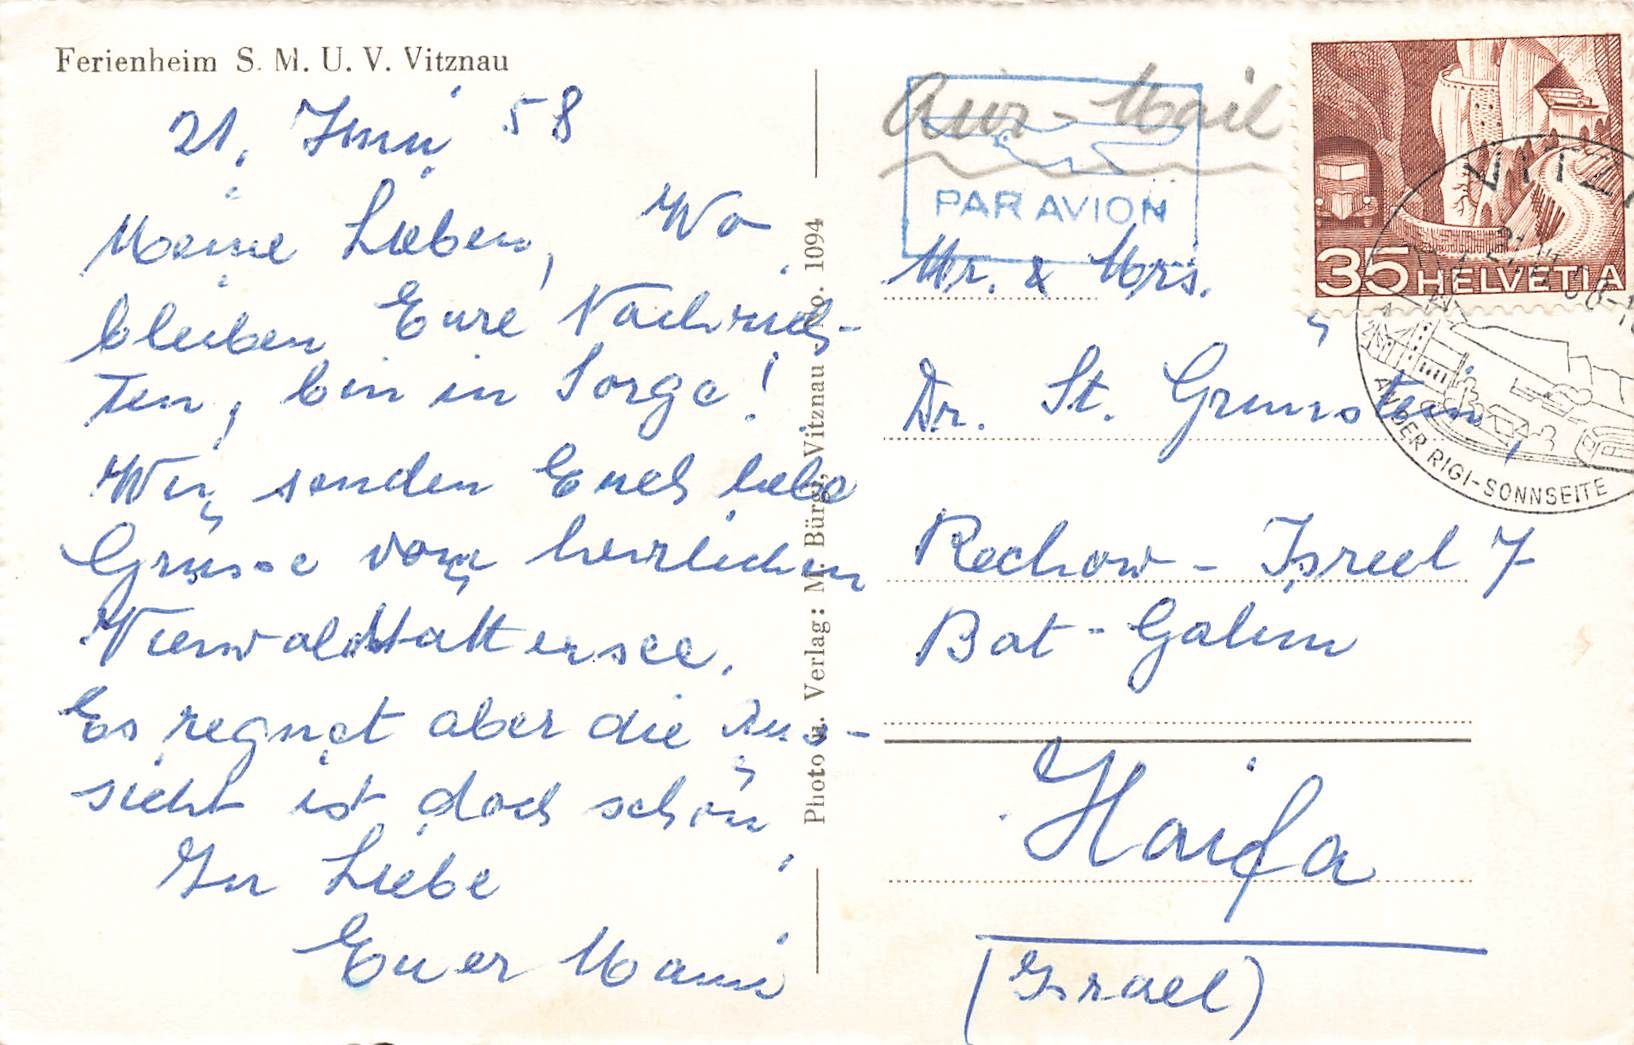 Ferienheim S. M. U. V. Vitznau
21. Juni 58
Meine Lieben, Wo
bleiben Eure Nachrich-
ten, bin in Sorge!
Wir senden Euch liebe
Grüsse vom herrlichen
Vierwaldstattersee.
Es regnet aber die Aus-
sicht ist doch schön,
In Liebe
Euer Mami
Photo u. Verlag: M. Bürgi, Vitznau No. 1094
Air-Mail
PAR AVION
35 HELVETIA
VITZ
AN DER RIGI-SONNSEITE
Mr. & Mrs.
Dr. St. Grünstein,
Rechow - Isreel 7
Bat-Galim
Haifa
(Israel)